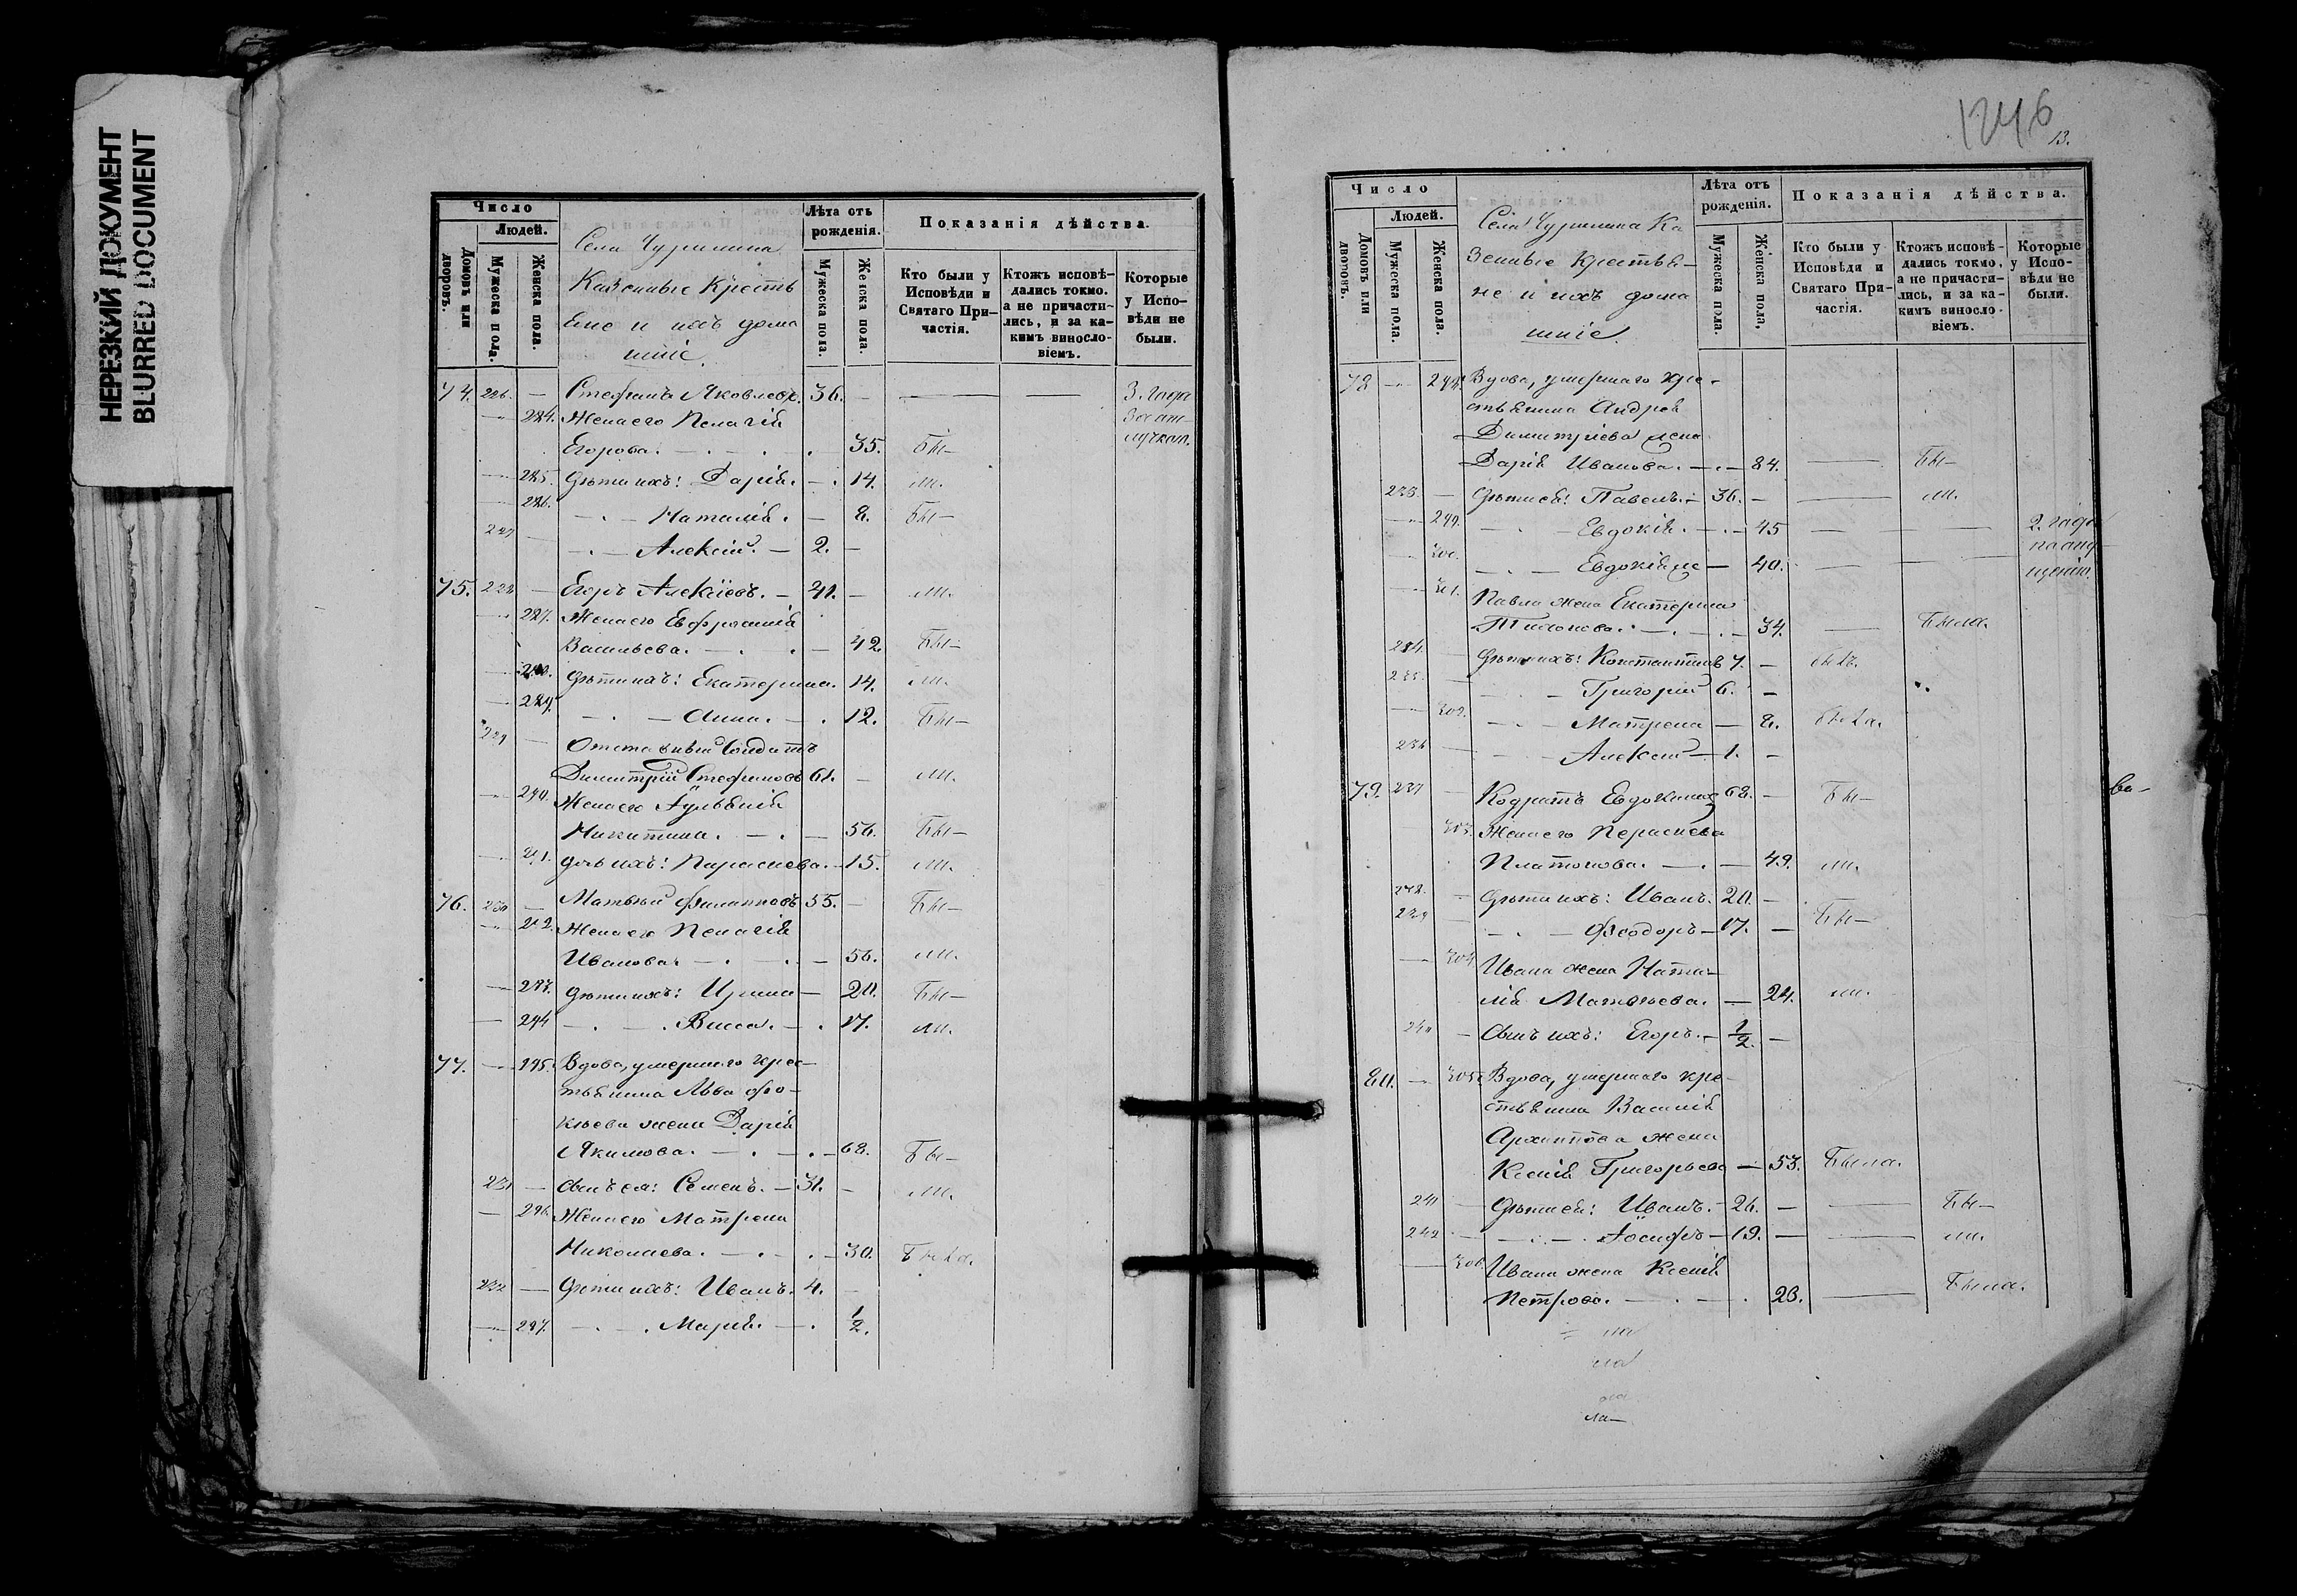 НЕРЕЗКИЙ ДОКУМЕНТ
BLURRED DOCUMENT
Число
Людей.
Домовъ или дворовъ.
Мужеска пола.
Женска пола.
Села Чурилина
Казенные Кресть
яне и ихъ дома
шніе.
Лѣта отъ рожденія.
Мужеска пола.
Женска пола.
Показанія дѣйства.
Кто были у Исповѣди и Святаго Причастія.
Ктожъ исповѣдались токмо, а не причастились, и за какимъ винословіемъ.
Которые у Исповѣди не были.
74. 226. — Стефанъ Яковлевъ. 36. — — — 3. года
— 284. Жена его Пелагія за от
Егорова. — 35. Бы— лучкою.
— 285. Дѣти ихъ: Дарія. — 14. ли.
— 286. — Наталія. — 8. Бы—
227 — Алексій. — 2. —
75. 228 — Егоръ Алексіевъ. — 41. — ли.
— 287. Жена его Евфросинія
Васильева. — 42. Бы—
— 288. Дѣти ихъ: Екатерина. 14. ли.
— 289. — Анна. — 12. Бы—
229 — Отставный Солдатъ
Димитрій Стефановъ 61. — ли.
— 290. Жена его Іуліанія
Никитина. — 56. Бы—
— 291. Дочь ихъ: Параскева. — 15. ли.
76. 230 — Матвѣй Филипповъ 55. — Бы—
— 292. Жена его Пелагія
Иванова. — 56. ли.
— 293. Дѣти ихъ: Ирина — 20. Бы—
— 294 — Васса. — 17. ли.
77. — 295. Вдова, умершаго крес—
тьянина Льва Фо—
кѣева жена Дарія
Якимова. — 68. Бы—
231 — Сынъ ея: Семенъ. — 31. — ли.
— 296. Жена его Матрена
Николаева. — 30. Была.
232 — Дѣти ихъ: Иванъ. 4. —
— 297. — Марія. — 1/2.
1246
13.
Число
Людей.
Домовъ или дворовъ.
Мужеска пола.
Женска пола.
Села Чурилина Ка
зенные Крестья—
не и ихъ дома
шніе.
Лѣта отъ рожденія.
Мужеска пола.
Женска пола,
Показанія дѣйства.
Кто были у Исповѣди и Святаго Причастія.
Ктожъ исповѣдались токмо, а не причастились, и за какимъ винословіемъ.
Которые у Исповѣди не были.
78 — 298. Вдова, умершаго кре—
стьянина Андрея
Димитріева жена
Дарія Иванова. — 84. — Бы—
233. — Дѣти ея: Павелъ. — 36. — — ли.
— 299. — Евдокія. — 45 — — 2. года
— 300. — Евдокія же — 40. — — по опу
щенію.
— 301. Павла жена Екатерина
34. — Была.
234. — Дѣти ихъ: Константинъ 7. — Былъ.
235. — Григорій 6. —
— 302. — Матрена — 8. Была.
236 — Алексій — 1. —
79. 237 — Кодратъ Евдокимовъ 68. — Бы—
— 303. Жена его Параскева
Платонова. — 49. ли.
238. — Дѣти ихъ: Иванъ. 20. —
239 — Ѳеодоръ — 17. — Бы—
— 304 Ивана жена Ната—
лія Матвѣева. — 24. ли.
240 — Сынъ ихъ: Егоръ. — 1/2. —
80. — 305. Вдова, умершаго кре—
стьянина Василія
Архиппова жена
Ксенія Григорьева — 53. Была.
241 — Дѣти ея: Иванъ. — 26. — — Бы—
242 — Іосифъ — 19. — — ли.
— 306. Ивана жена Ксенія
Петрова. — 23. — Была.
ла
ла
ла
ла—